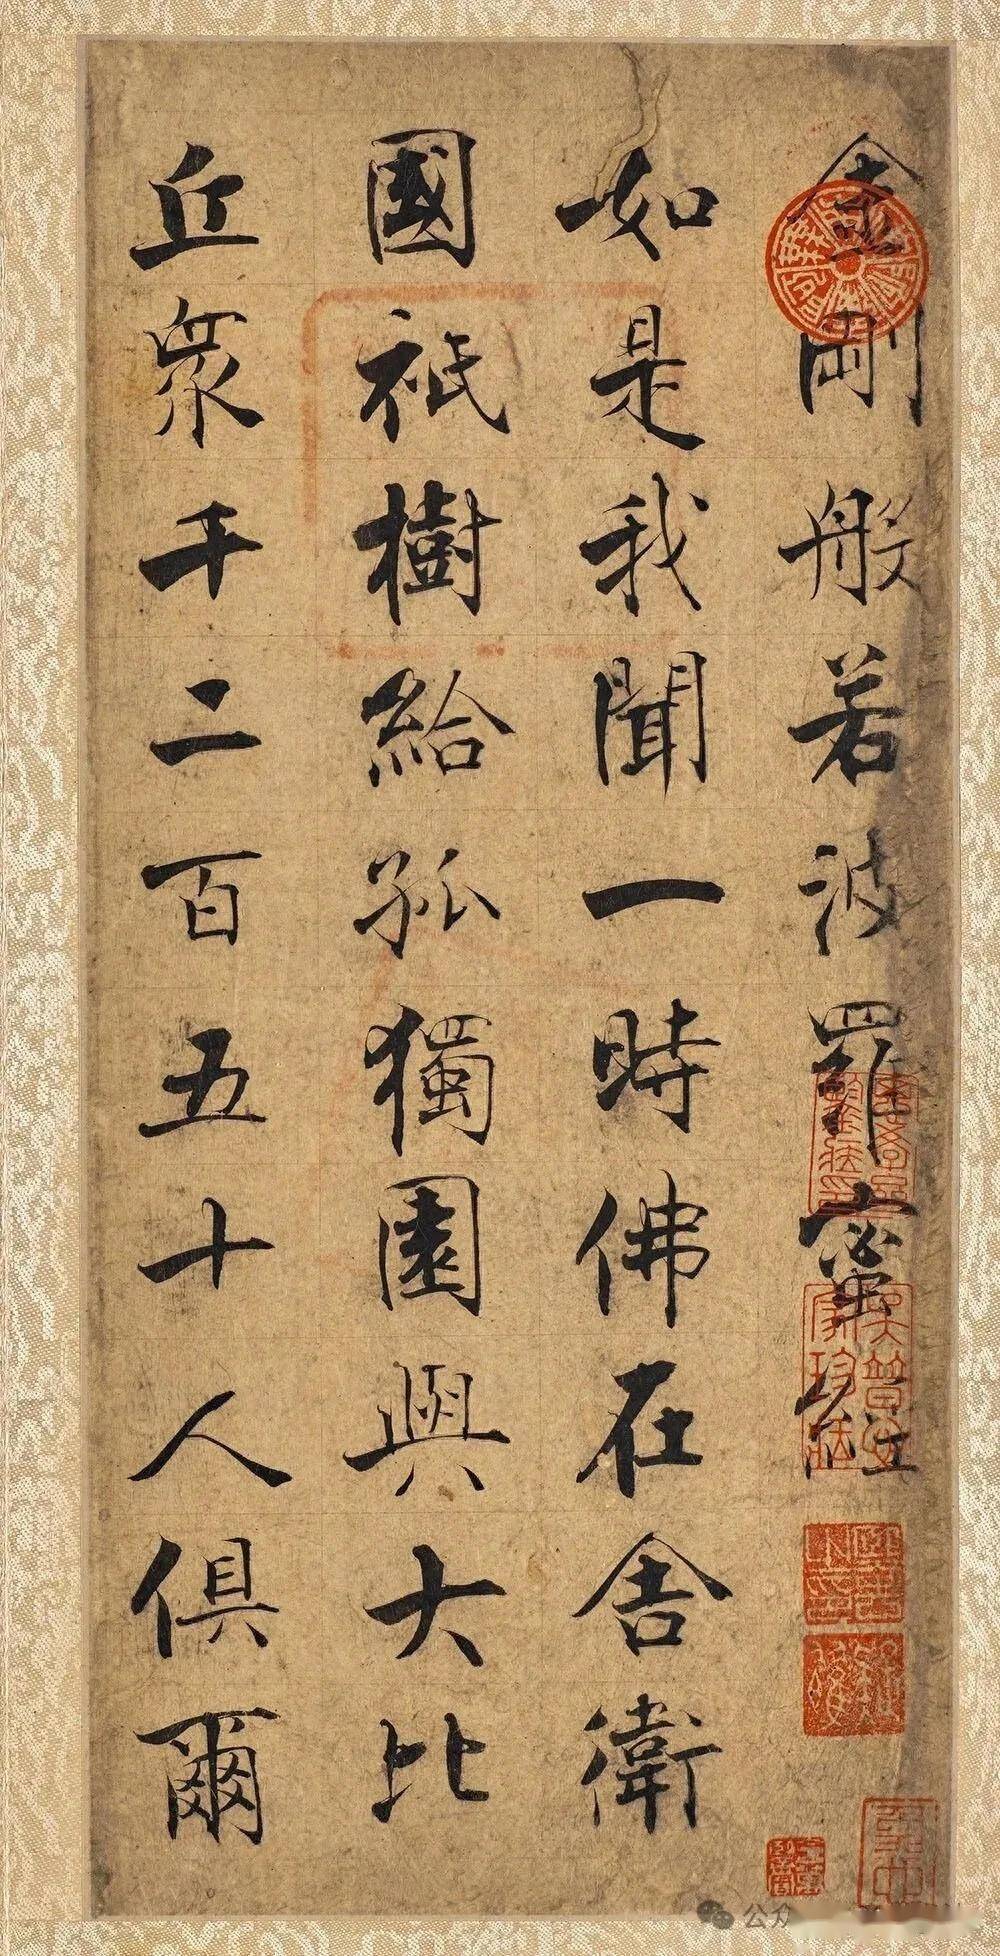 金剛般若波羅蜜經
如是我聞一時佛在舍衛
國祇樹給孤獨園與大比
丘眾千二百五十人俱爾
公众